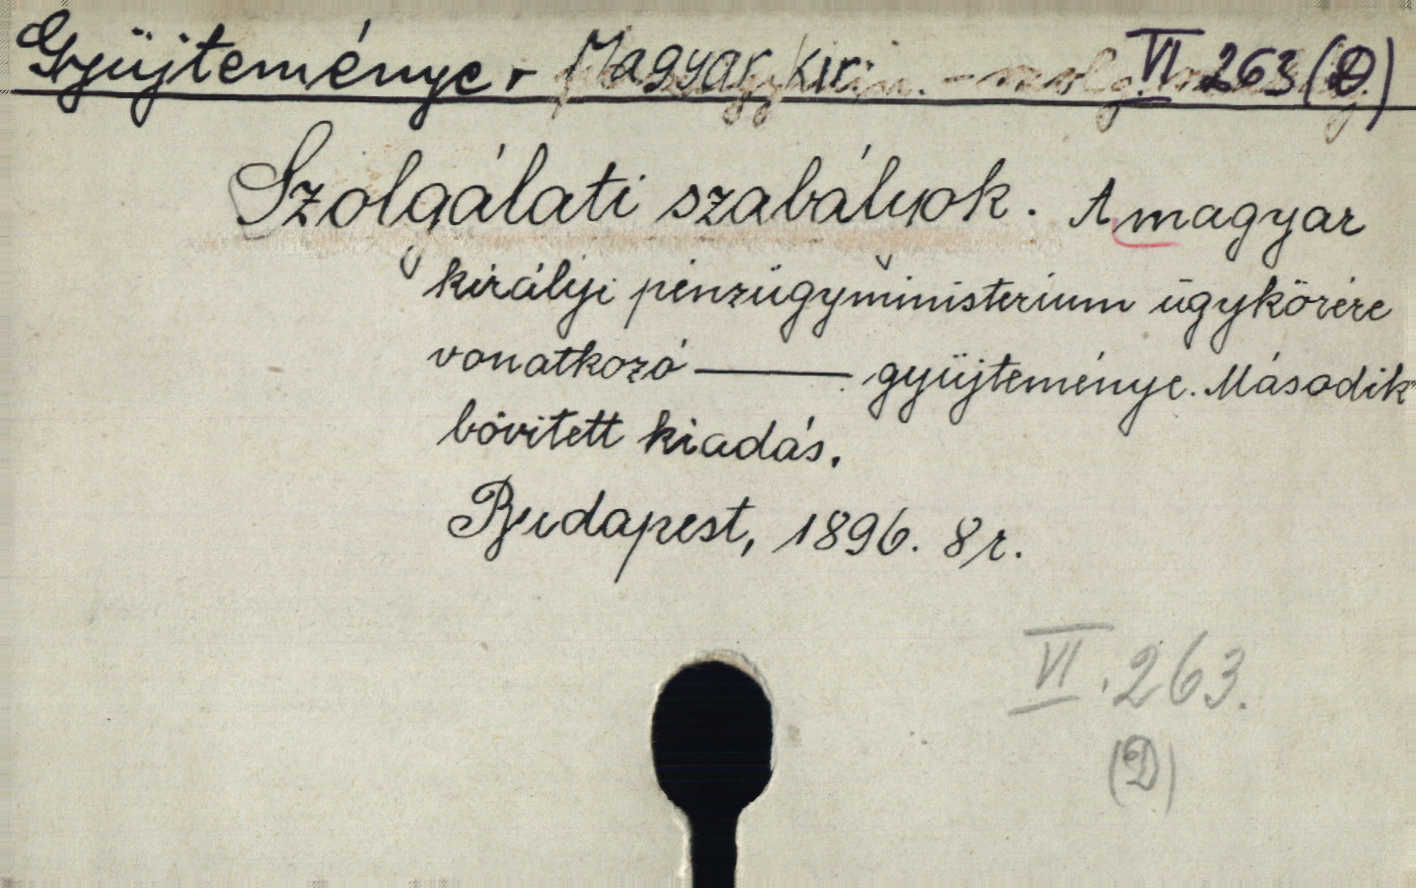 Gyüjteménye - Magyar kir. VI. 263 (D.)
Szolgálati szabályok. A magyar
királyi pénzügyministerium ügykörére
vonatkozó ——— gyüjteménye. Második
bővitett kiadás.
Budapest, 1896. 8r.
VI. 263.
(D)